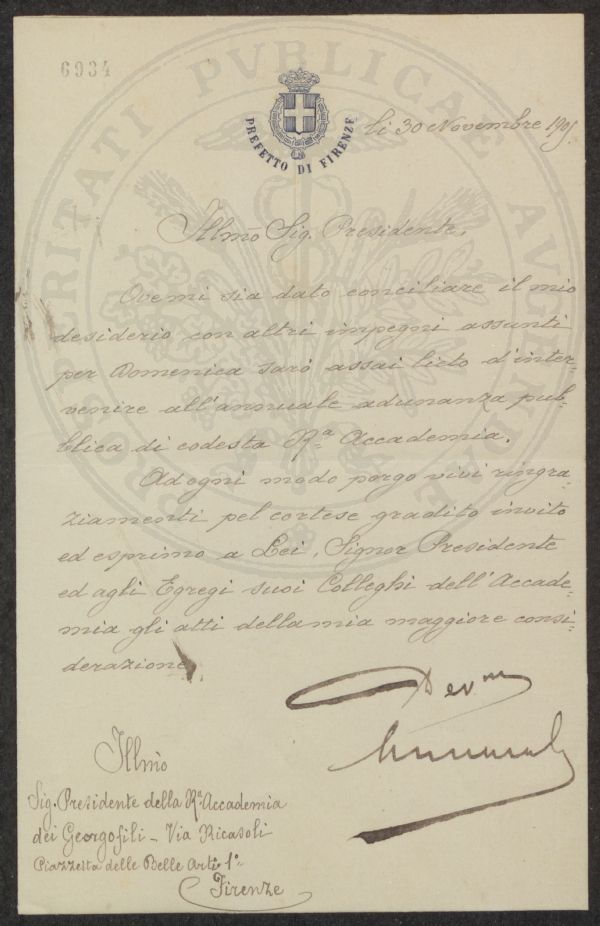 6934
PROSPERITATI PVBLICAE AVGENDAE
PREFETTO DI FIRENZE
li 30 Novembre 190
Illmo Sig. Presidente,
Ove mi sia dato conciliare il mio
desiderio con altri impegni assunti
per Domenica sarò assai lieto d'inter-
venire all'annuale adunanza pub-
blica di codesta Rª Accademia.
Ad ogni modo porgo vivi ringra-
ziamenti pel cortese gradito invito
ed esprimo a Lei, Signor Presidente
ed agli Egregi suoi Colleghi dell'Accade-
mia gli atti della mia maggiore consi-
derazione.
Dev.mo
Illmo
Sig. Presidente della Rª Accademia
dei Georgofili - Via Ricasoli
Piazzetta delle Belle Arti 1º
Firenze